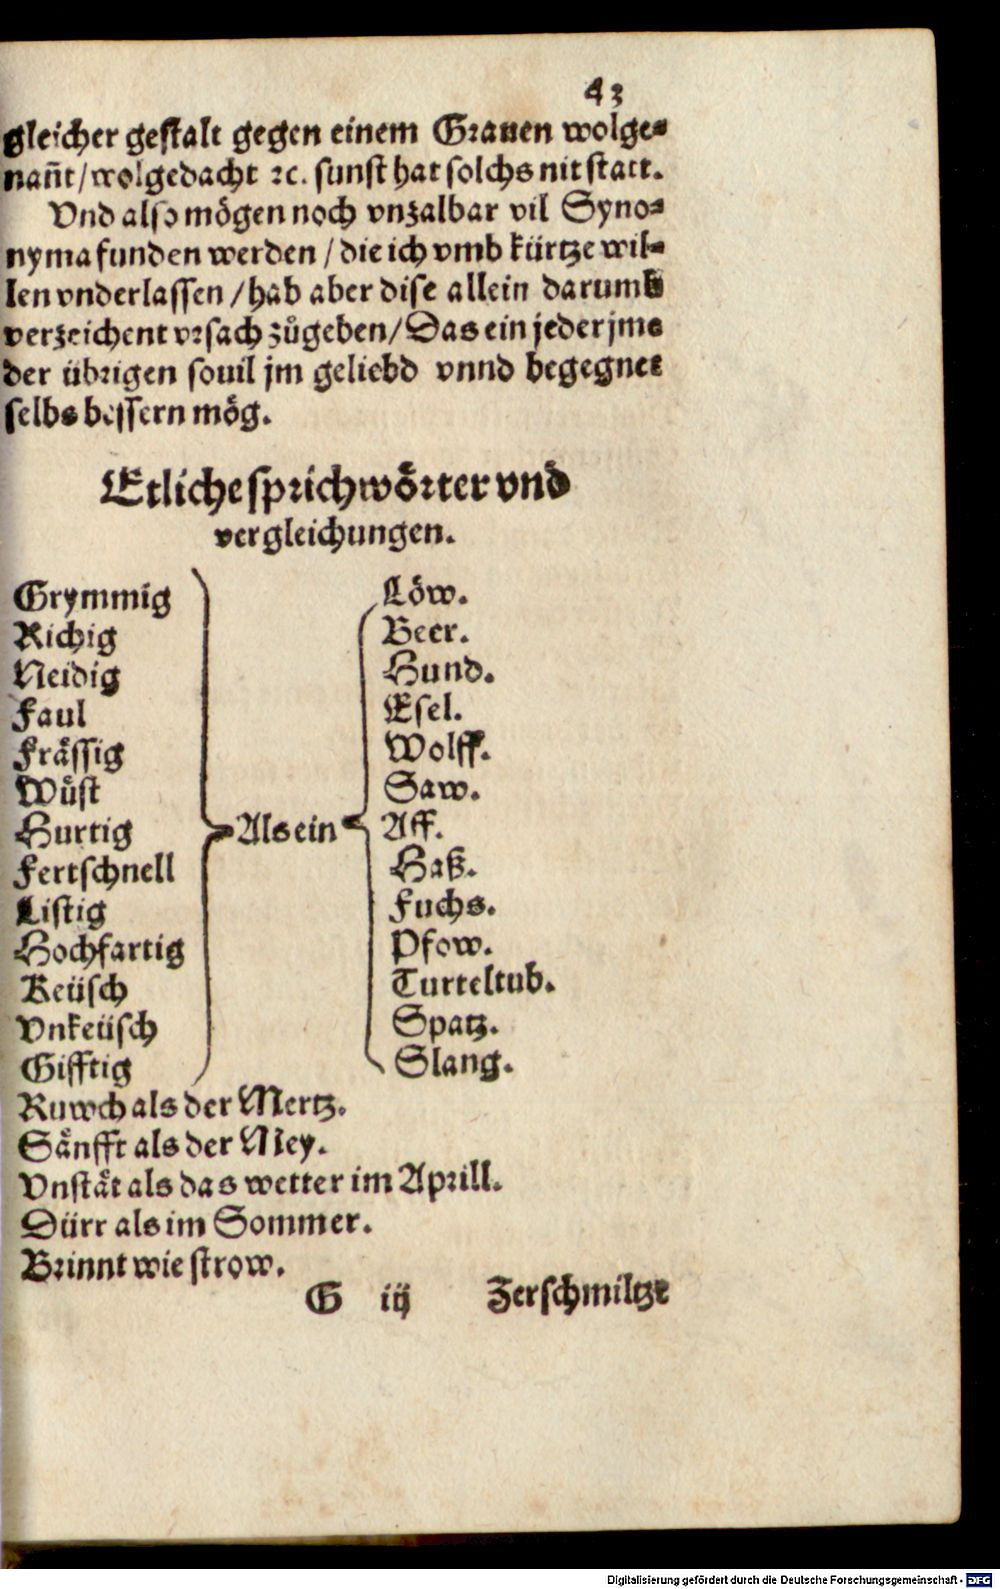 43
gleicher gestalt gegen einem Grauen wolge⸗
nañt/wolgedacht ꝛc. sunst hat solchs nit statt.
Vnd also mögen noch vnzalbar vil Syno⸗
nyma funden werden / die ich vmb kürtze wil⸗
len vnderlassen /hab aber dise allein darumb
verzeichent vrsach zůgeben/Das ein jeder jme
der übrigen souil jm geliebd vnnd begegnet
selbs bessern mög.
Etliche sprichwörter vnd
vergleichungen.
Grymmig Löw.
Richig Beer.
Neidig Hund.
Faul Esel.
Fräſſig Wolff.
Wüst Saw.
Hurtig Als ein Aff.
Fertschnell Haß.
Listig Fuchs.
Hochfartig Pfow.
Keüsch Turteltub.
Vnkeüsch Spatz.
Gifftig Slang.
Ruwch als der Mertz.
Sänfft als der Mey.
Vnstät als das wetter im Aprill.
Dürr als im Sommer.
Brinnt wie strow.
G iij Zerschmiltzt
Digitalisierung gefördert durch die Deutsche Forschungsgemeinschaft - DFG